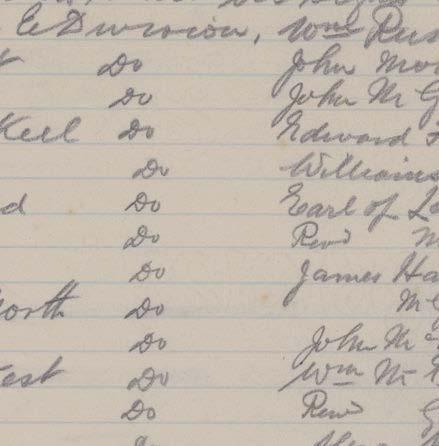 E Division, Wm Rus
Do John Mo
Do John M G
Keel Do Edward
Do William
d Do Earl of L
Do Revd M
Do James Ha
North Do Mc
Do John Mc
est Do Wm M
Do Revd G